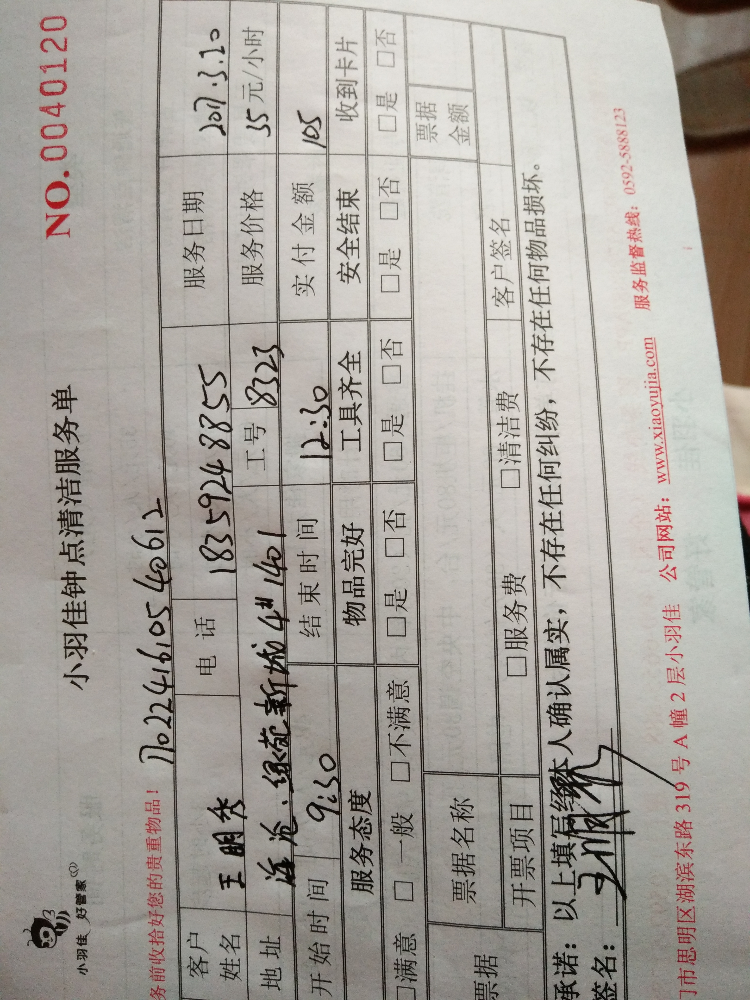 小羽佳 好管家
小羽佳钟点清洁服务单
NO.0040120
务前收拾好您的贵重物品！ 170224161054 0612
客户姓名 王明秀 电话 18359248855 服务日期 2017.3.20
地址 绿苑新城4# 1401 工号 8323 服务价格 35元/小时
开始时间 9:30 结束时间 12:30 实付金额 105
服务态度 物品完好 工具齐全 安全结束 收到卡片
□满意 □一般 □不满意 □是 □否 □是 □否 □是 □否 □是 □否
票据 票据名称 票据金额
开票项目 □服务费 □清洁费 客户签名
承诺：以上填写经本人确认属实，不存在任何纠纷，不存在任何物品损坏。
签名：
门市思明区湖滨东路 319 号 A 幢 2 层小羽佳 公司网站：www.xiaoyujia.com 服务监督热线：0592-5888123